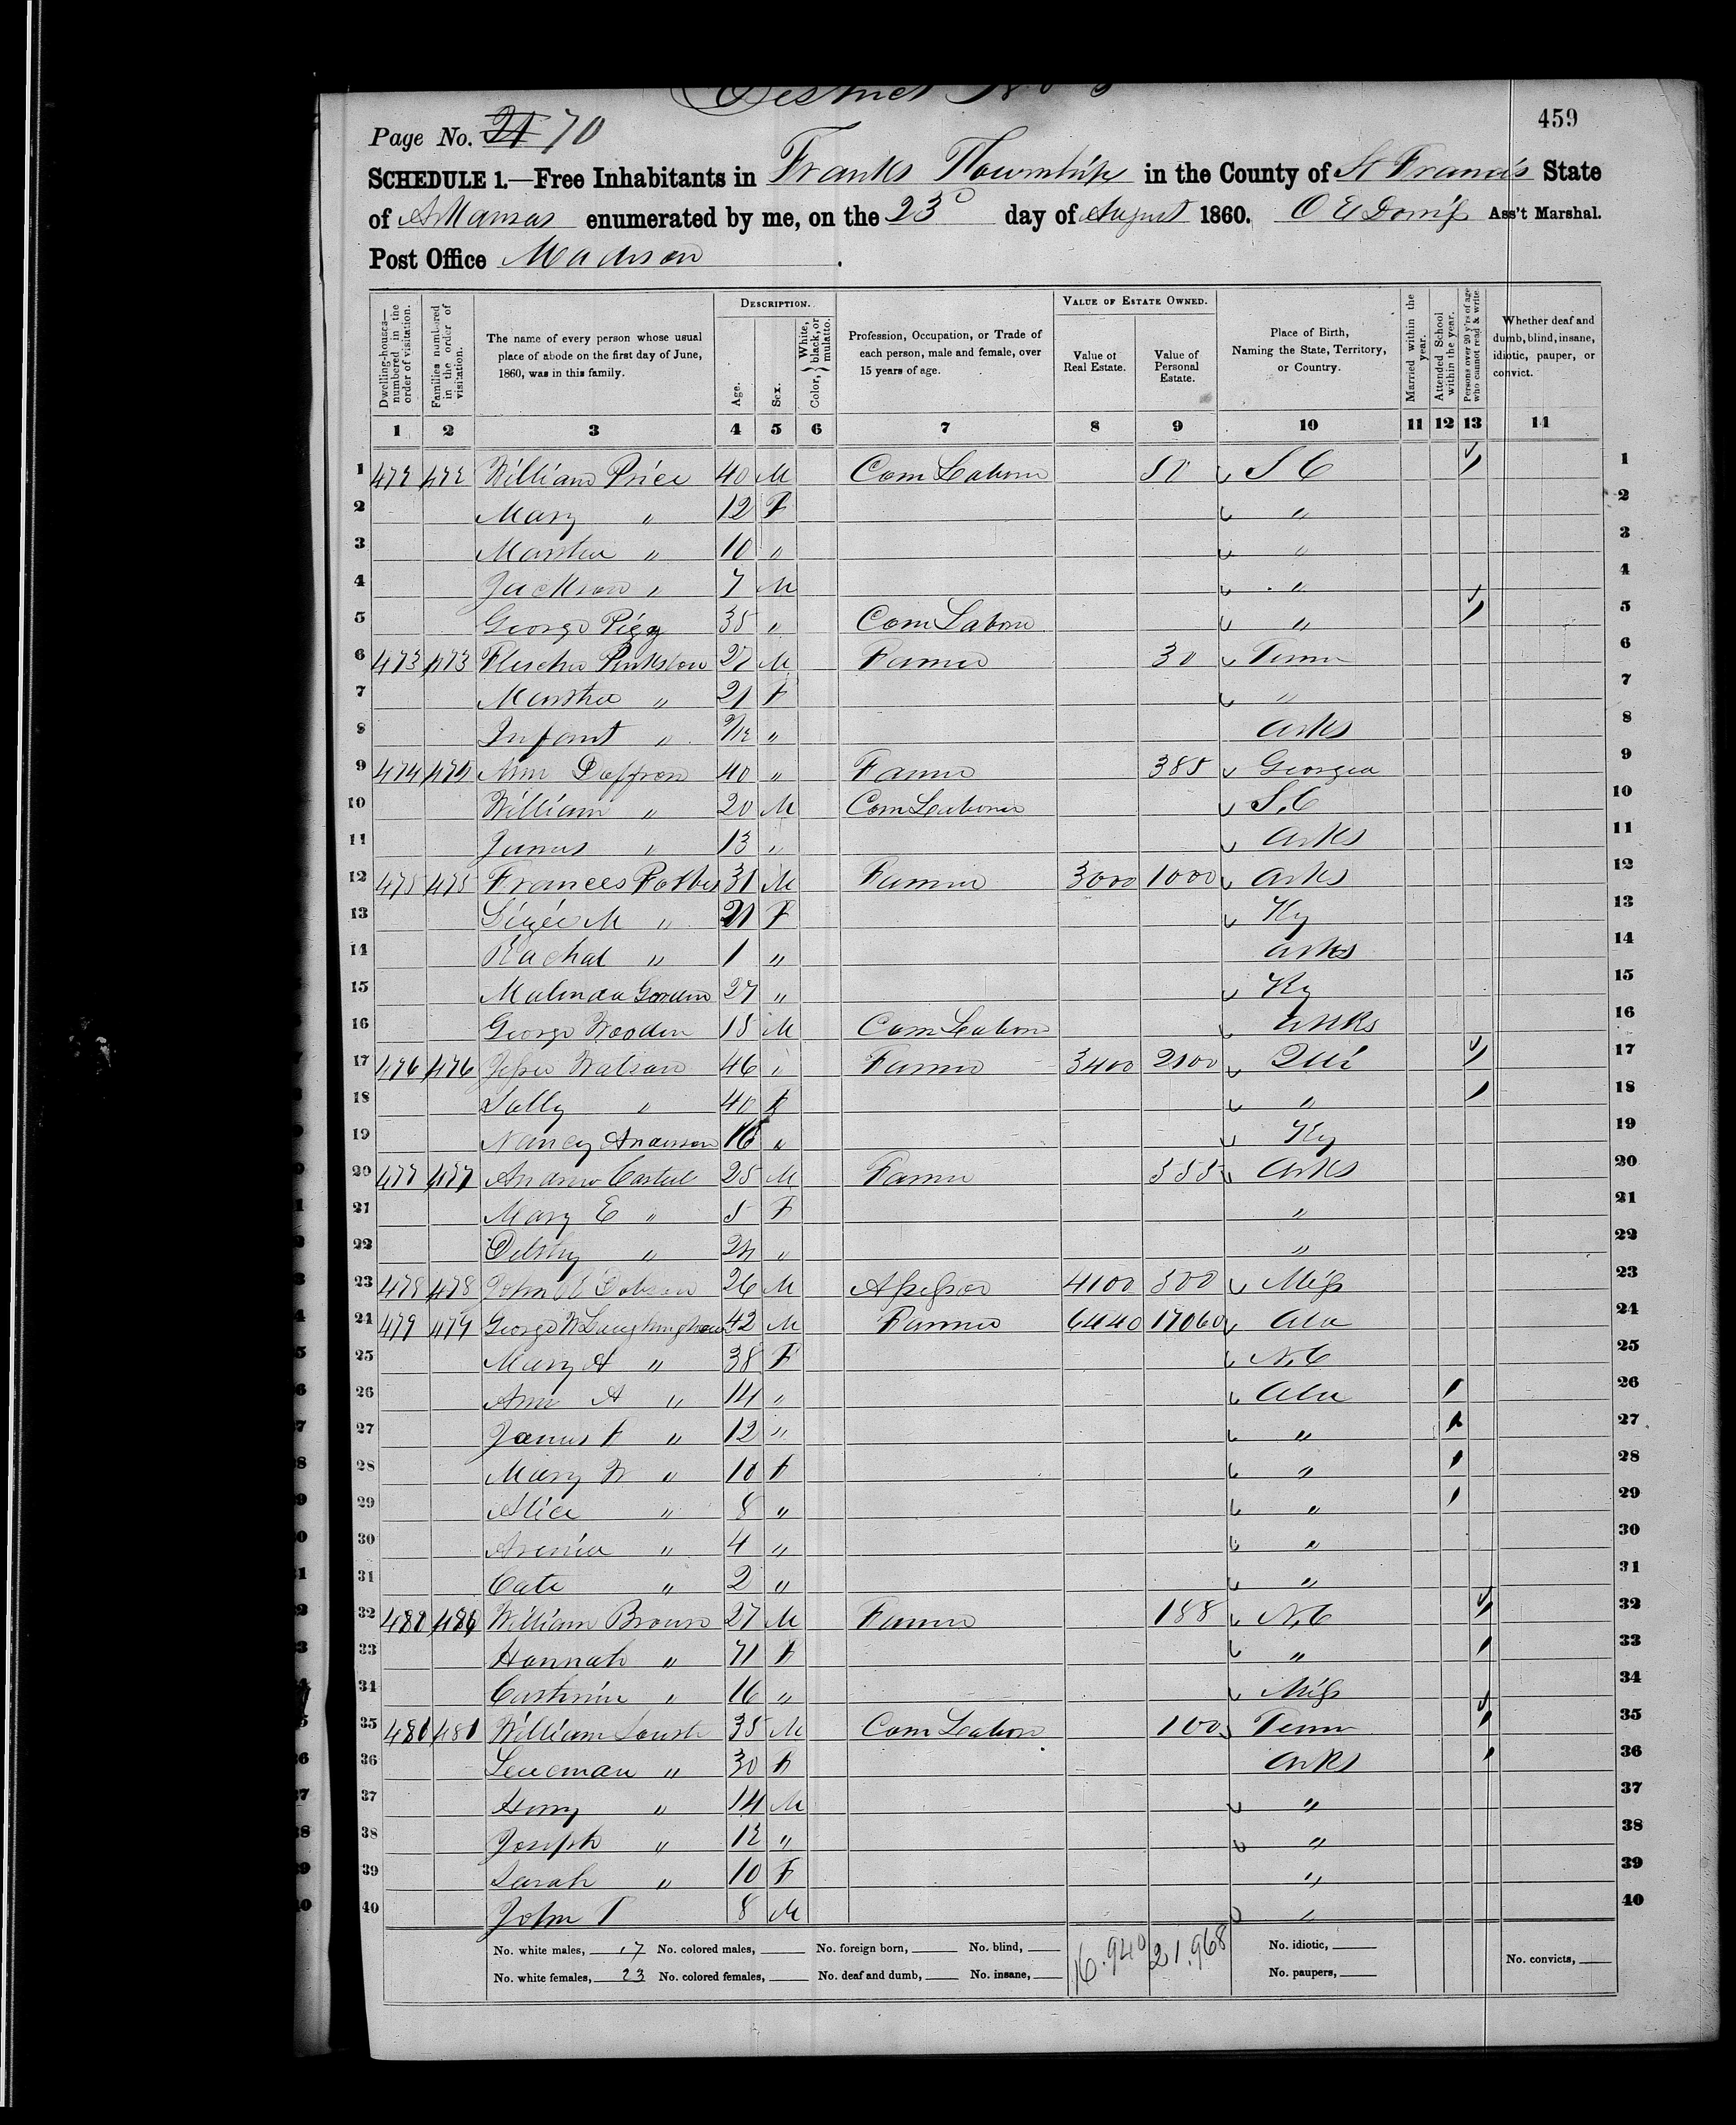 District No 3
459
Page No. 21 70
SCHEDULE 1.—Free Inhabitants in Franks Township in the County of St Francis State
of Arkansas enumerated by me, on the 23d day of August 1860. Ass't Marshal.
Post Office Madison.
Dwelling-houses—numbered in the order of visitation.
Families numbered in the order of visitation.
The name of every person whose usual place of abode on the first day of June, 1860, was in this family.
DESCRIPTION.
Age.
Sex.
Color, { White, black, or mulatto.
Profession, Occupation, or Trade of each person, male and female, over 15 years of age.
VALUE OF ESTATE OWNED.
Value of Real Estate.
Value of Personal Estate.
Place of Birth, Naming the State, Territory, or Country.
Married within the year.
Attended School within the year.
Persons over 20 y'rs of age who cannot read & write.
Whether deaf and dumb, blind, insane, idiotic, pauper, or convict.
1 2 3 4 5 6 7 8 9 10 11 12 13 14
1 472 472 William Price 40 M Com Labour 50 S C / 1
2 Mary " 12 F " 2
3 Martha " 10 " " 3
4 Jackson " 7 M " 4
5 George Pigg 35 " Com Labour " / 5
6 473 473 Flescher Pinkston 27 M Farmer 30 Tenn 6
7 Martha " 21 F " 7
8 Infant " 9/12 " Arks 8
9 474 474 Ann Daffron 40 " Farmer 385 Georgia 9
10 William " 20 M Com Labourer S.C 10
11 James " 13 " Arks 11
12 475 475 Frances 31 M Farmer 3000 1000 Arks 12
13 M " 21 F Ky 13
14 Rachal " 1 " Arks 14
15 Malinda Gordon 27 " Ky 15
16 George Wooden 18 M Com Labour Arks 16
17 476 476 Jesse Watson 46 " Farmer 3400 2100 Illi / 17
18 Sally " 40 F " / 18
19 Nancy Anderson 16 " Ky 19
20 477 477 Andrew Casteel 25 M Farmer 555 Arks 20
21 Mary E " 5 F " 21
22 " 24 " " 22
23 478 478 John Dobson 26 M Assessor 4100 500 Miss 23
24 479 479 George W Laughinghouse 42 M Farmer 6440 17060 Ala 24
25 Mary A " 38 F N.C 25
26 Ann A " 14 " Ala / 26
27 James F " 12 " " / 27
28 Mary W " 10 F " / 28
29 Alice " 8 " " / 29
30 " 4 " " 30
31 Cate " 2 " " 31
32 480 480 William Brown 27 M Farmer 188 N.C / 32
33 Hannah " 71 F " / 33
34 " 16 " Miss 34
35 481 481 William 35 M Com Labour 100 Tenn / 35
36 " 30 F Arks / 36
37 " 14 M " 37
38 Joseph " 12 " " 38
39 Sarah " 10 F " 39
40 John T 8 M " 40
No. white males, 17 No. colored males, No. foreign born, No. blind, 16.940 21.968 No. idiotic,
No. white females, 23 No. colored females, No. deaf and dumb, No. insane, No. paupers, No. convicts,